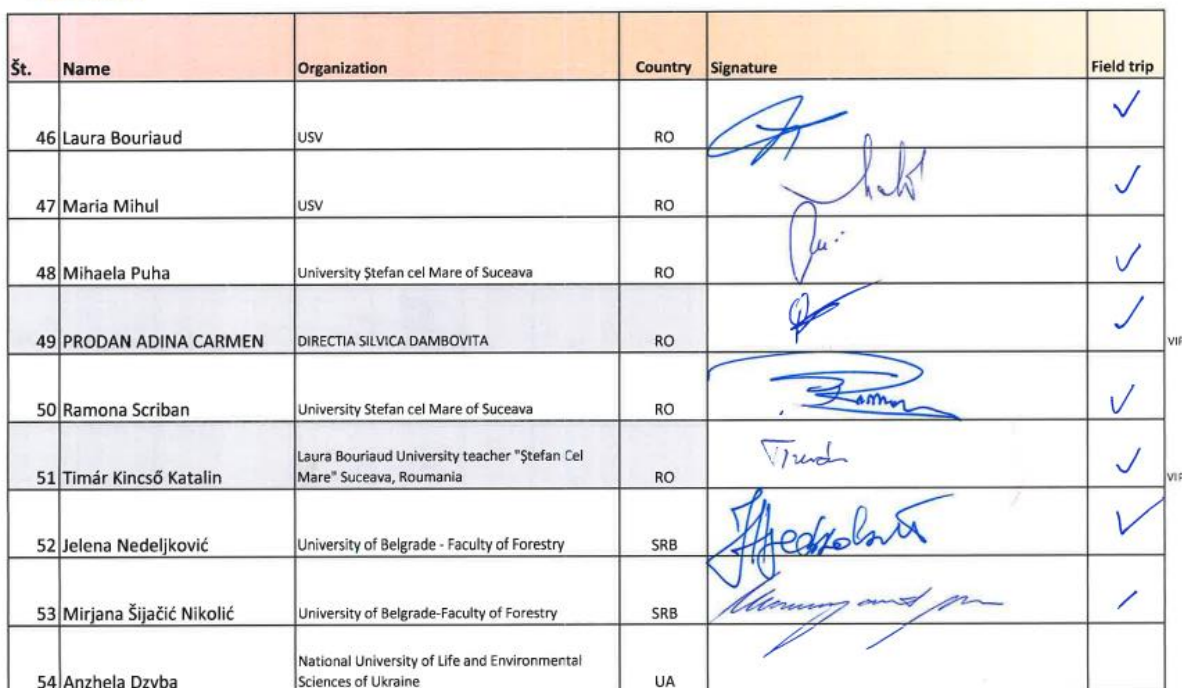 Št. Name Organization Country Signature Field trip
46 Laura Bouriaud USV RO ✓
47 Maria Mihul USV RO ✓
48 Mihaela Puha University Ştefan cel Mare of Suceava RO ✓
49 PRODAN ADINA CARMEN DIRECTIA SILVICA DAMBOVITA RO ✓ VIP
50 Ramona Scriban University Stefan cel Mare of Suceava RO ✓
Laura Bouriaud University teacher "Ştefan Cel
51 Timár Kincső Katalin Mare" Suceava, Roumania RO ✓ VIP
52 Jelena Nedeljković University of Belgrade - Faculty of Forestry SRB ✓
53 Mirjana Šijačić Nikolić University of Belgrade-Faculty of Forestry SRB
National University of Life and Environmental
54 Anzhela Dzyba Sciences of Ukraine UA